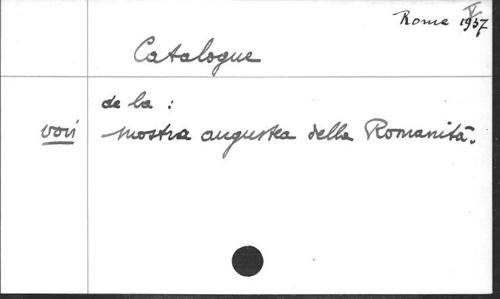 Rome 1937
V
Catalogue
de la :
voir mostra augustea della Romanità.